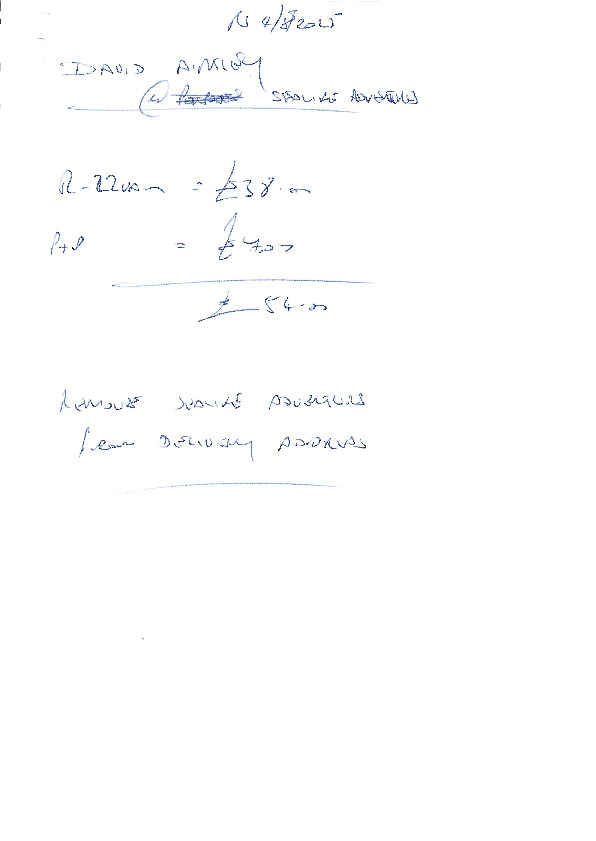 4/8/2025
DAVID AINKLEY
@ SEALIKE ADVENTURES
R-22 = £38.00
P+P = £7.00
£54.00
REMOVE SEALIKE ADVENTURES
from DELIVERY ADDRESS